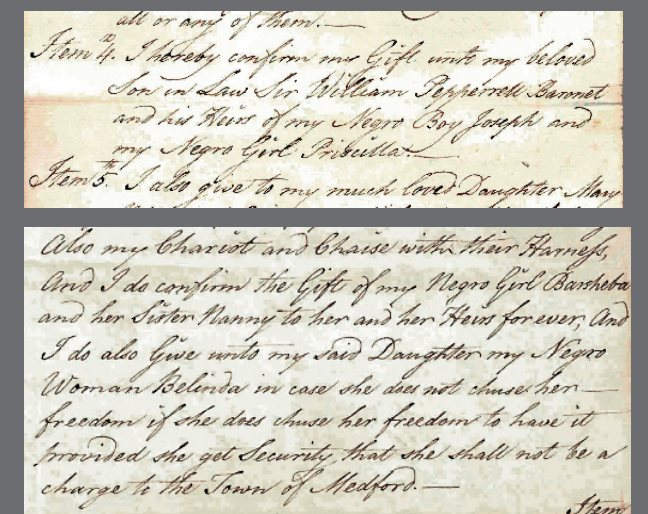 all or any of them.—
Item 4. I hereby confirm my Gift unto my beloved
Son in Law Sir William Pepperrell Baronet
and his Heirs of my Negro Boy Joseph and
my Negro Girl Priscilla.—
Item 5. I also give to my much loved Daughter Mary
Also my Chariot and Chaise with their Harness,
And I do confirm the Gift of my Negro Girl Barsheba
and her Sister Nanny to her and her Heirs for ever, And
I do also Give unto my said Daughter my Negro
Woman Belinda in case she does not chuse her—
freedom if she does chuse her freedom to have it
provided she get Security that she shall not be a
charge to the Town of Medford.—
Item